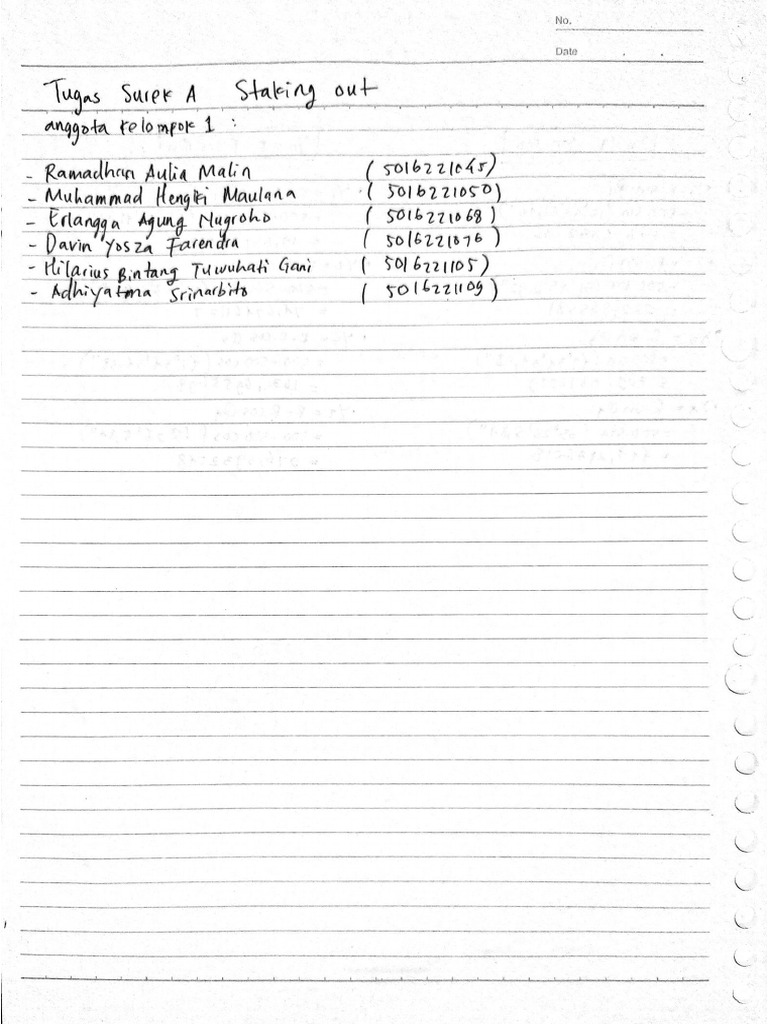 No.
Date
Tugas Surek A Staking out
anggota kelompok 1 :
- Ramadhan Aulia Malin (5016221045)
- Muhammad Hengki Maulana (5016221050)
- Erlangga Agung Nugroho (5016221068)
- Davin Yosza Farendra (5016221076)
- Hilarius Bintang Tuwuhati Gani (5016221105)
- Adhiyatma Srinarbito (5016221109)